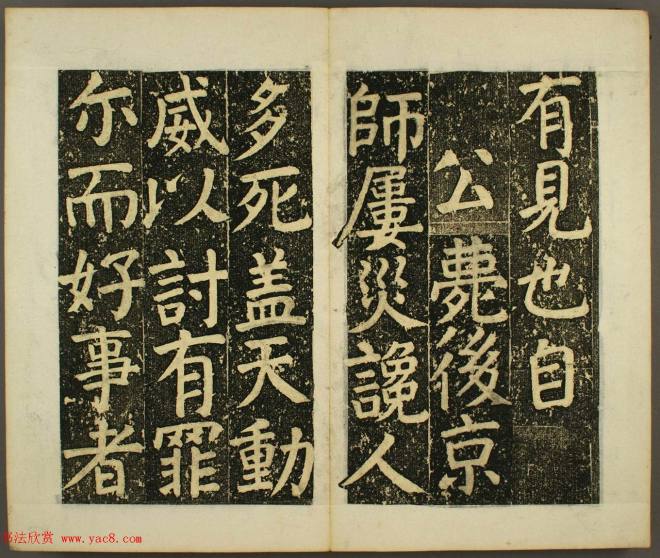 有見也自
公薨後京
師屢災讒人
多死盖天動
威以討有罪
尓而好事者
书法欣赏 www.yac8.com